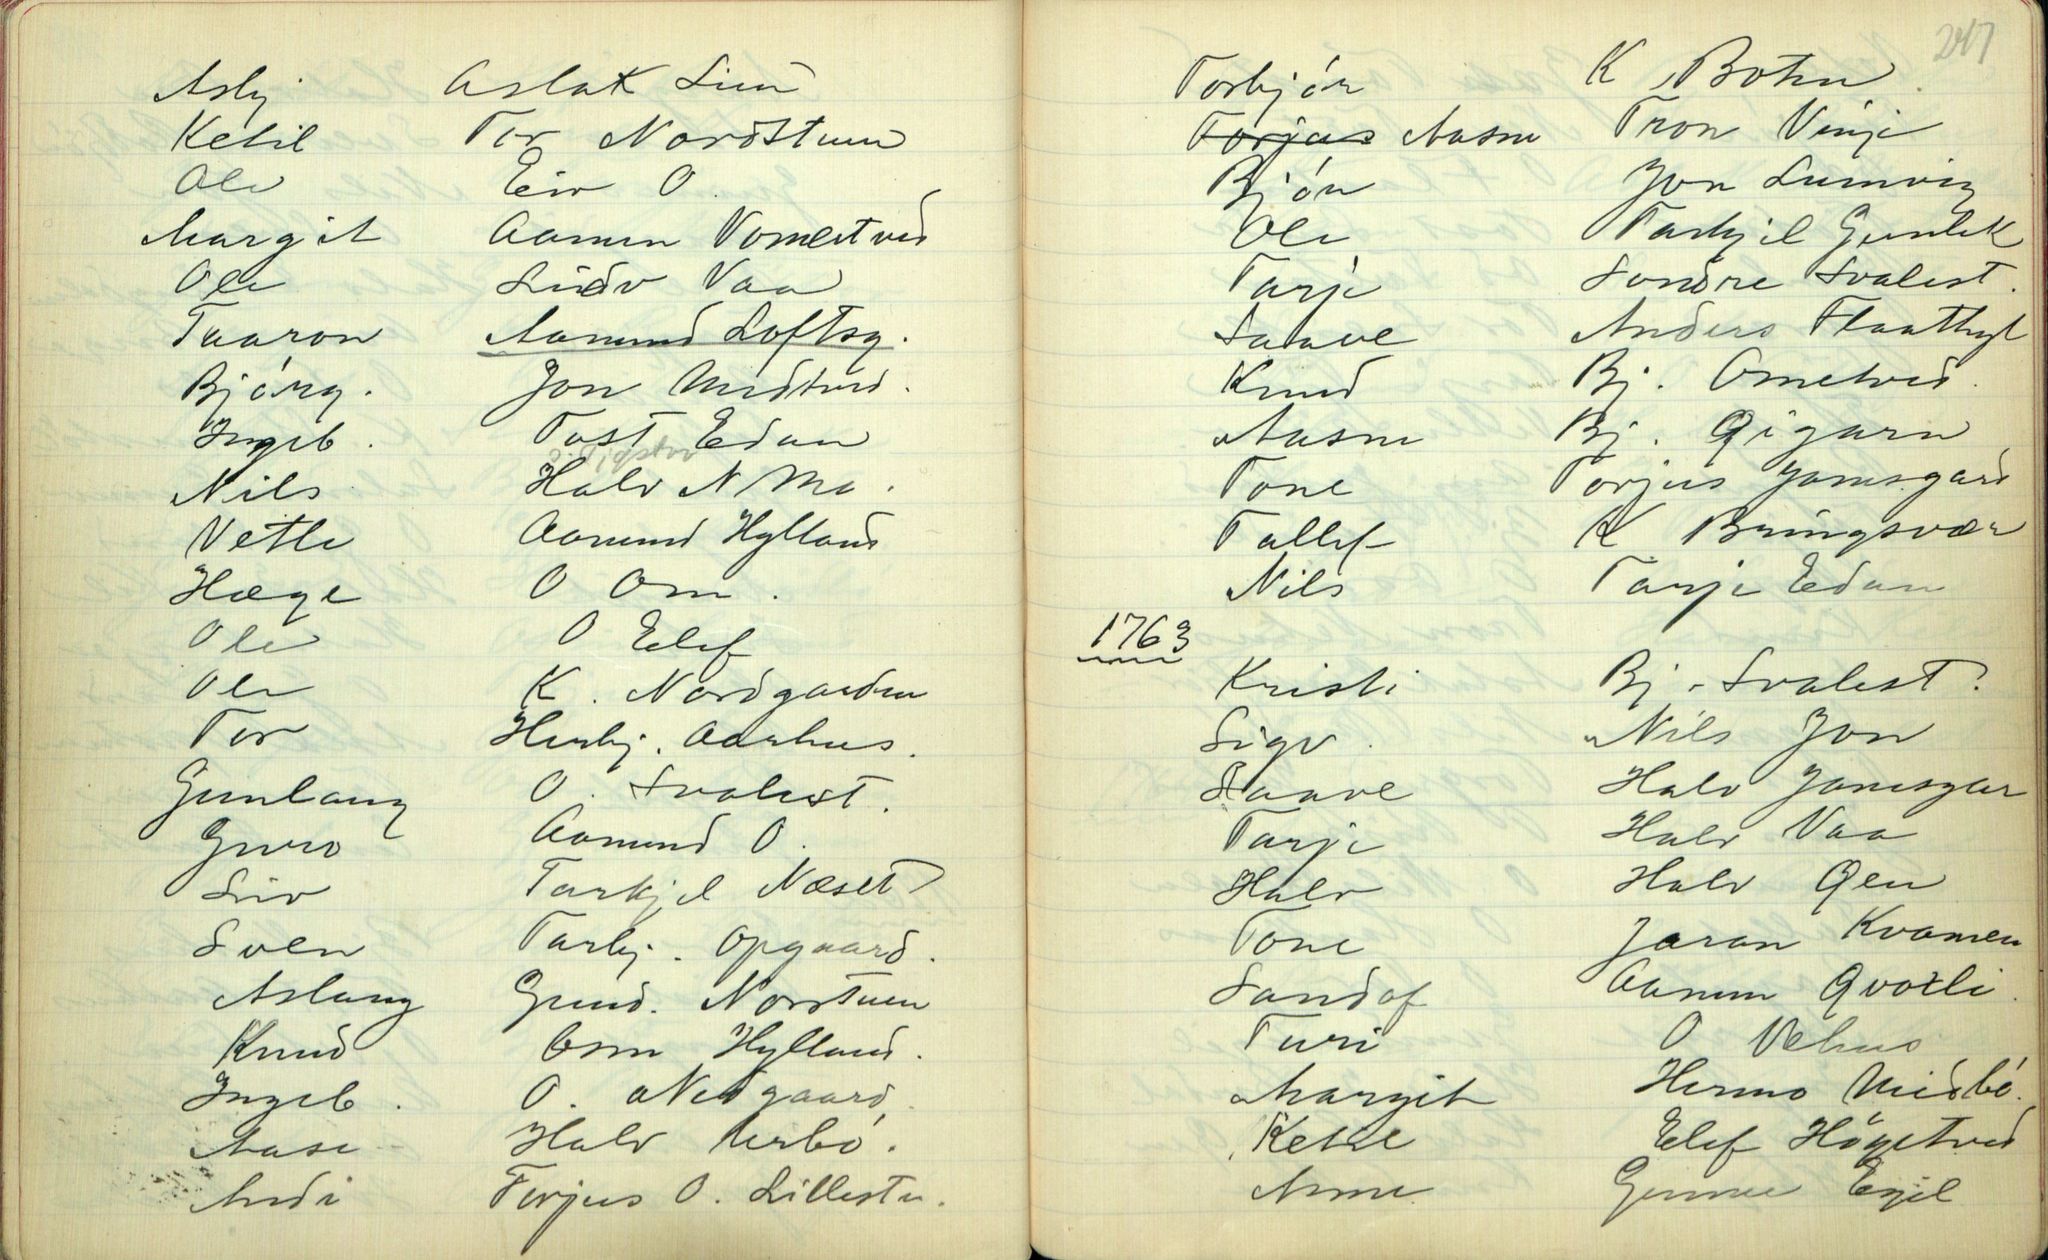 Asbj Aslak Lien
Ketil Tor Nordstuen
Ole Eiv O.
Margit Aamun Vometved
Ole Lidv Vaa
Taaron Aamund Loftsg.
Bjórg. Jon Midtved.
Ingeb. Tost Edan
Nils Halv N Mo.
Vetle Aamund Hylland
Hæge O Om.
Ole O Elef
Ole K. Nordgarden
Tor Herbj. Aarhus.
Gunlaug O. Svalest.
Guro Aamund O.
Liv Tarkjel Næset
Sven Tarbj. Opgaard.
Aslaug Gund. Norstuen
Knud Osm Hylland.
Ingeb. O. Nedgaard.
Aase Halv Nerbó.
Andi Torjus O. Lillestu.
247
Torbjón K Botn.
Torjus Aasne Tron Vinje
Bjón Jon Lumvig
Ole Tarkjel Gunlek
Tarje Sondre Svalest.
Saave Anders Flaathyl
Knud Bj. Ometved.
Aasne Bj. Qigarn
Tone Torjus Jamsgard
Tallef K Bringsvær
Nils Tarje Edan
1763
Kristi Bj. Svalest.
Sigv. Nils Jon
Saave Halv Jamsgar
Tarje Halv Vaa
Halv Halv Qen
Tone Jaran Kvamen
Sandof Aamun Qvoxli.
Turi O Vehus
Margit Hermo Midbó.
Ketil Elef Högetved
Anne Gunne Egil